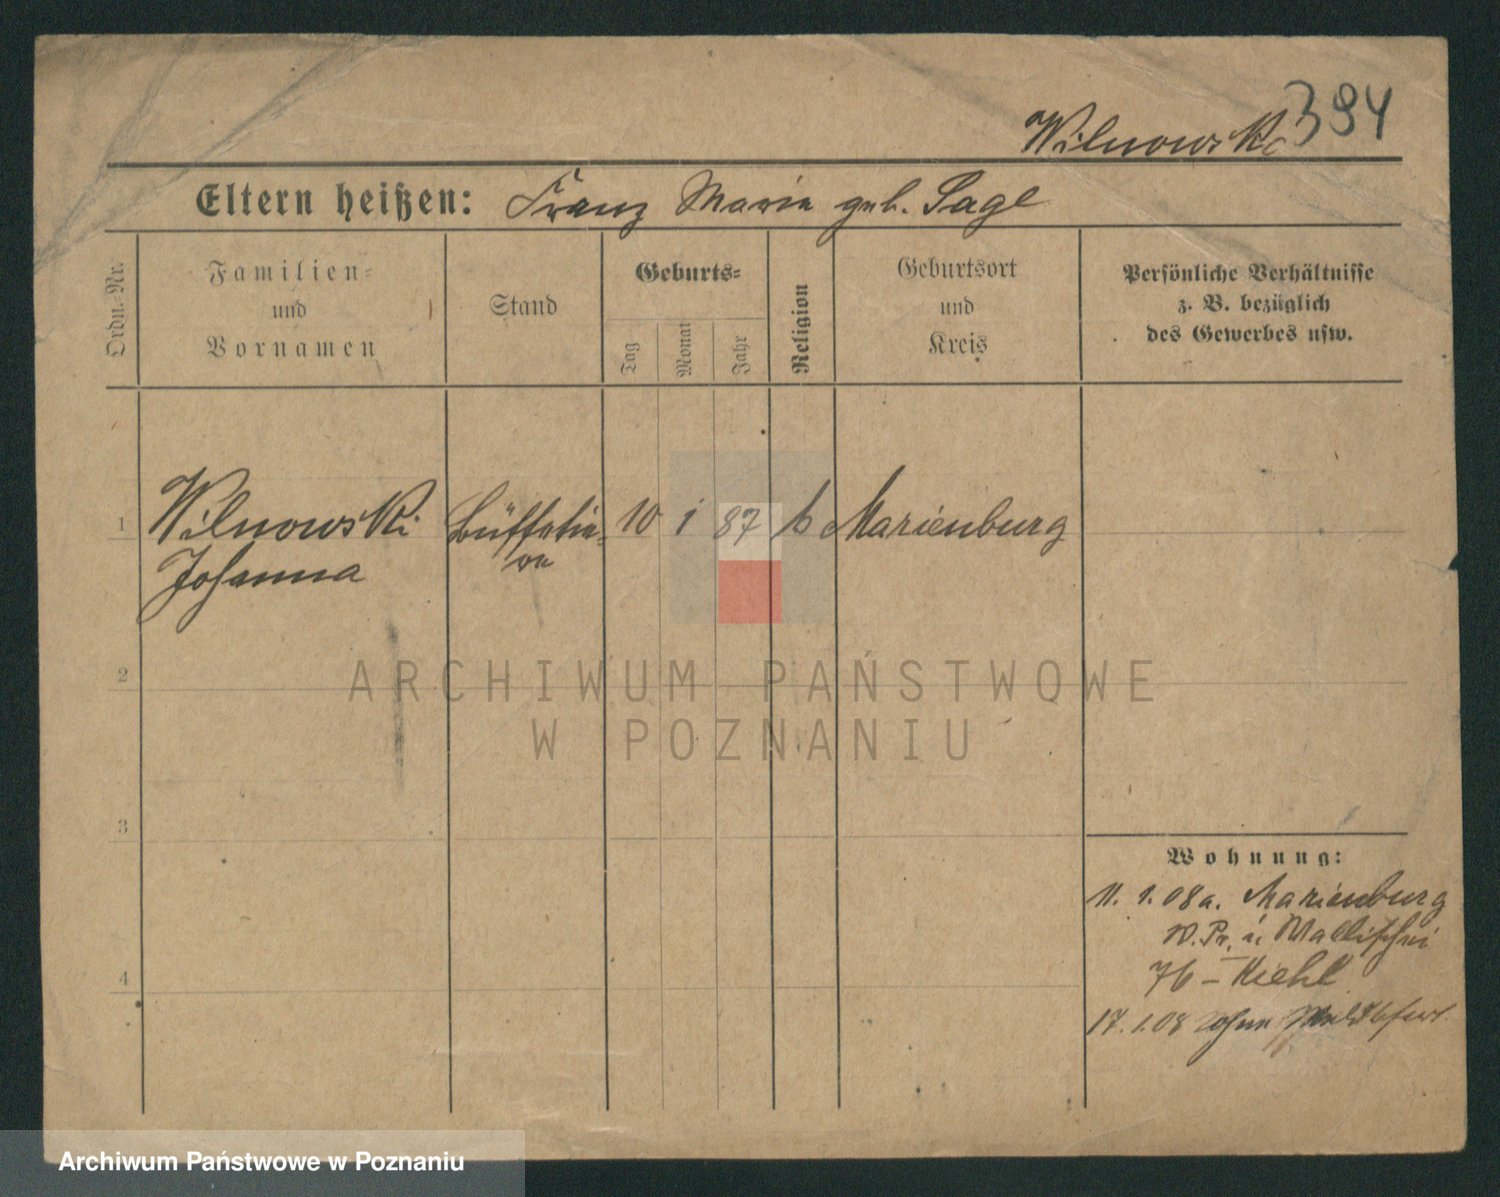 Wilnowski 394
Eltern heißen: Franz Marie geb. Sagl
Ordn.-Nr.
Familien-
und
Vornamen
Stand
Geburts-
Tag
Monat
Jahr
Religion
Geburtsort
und
Kreis
Persönliche Verhältnisse
z. B. bezüglich
des Gewerbes usw.
1 Wilnowski Büffetie= 10 1 87 k Marienburg
Johanna re
2
ARCHIWUM PAŃSTWOWE
W POZNANIU
3
4
Wohnung:
11. 1. 08 a. Marienburg
W. Pr. Wallischei
76 - Kiehl
17. 1. 08 ohne
Archiwum Państwowe w Poznaniu